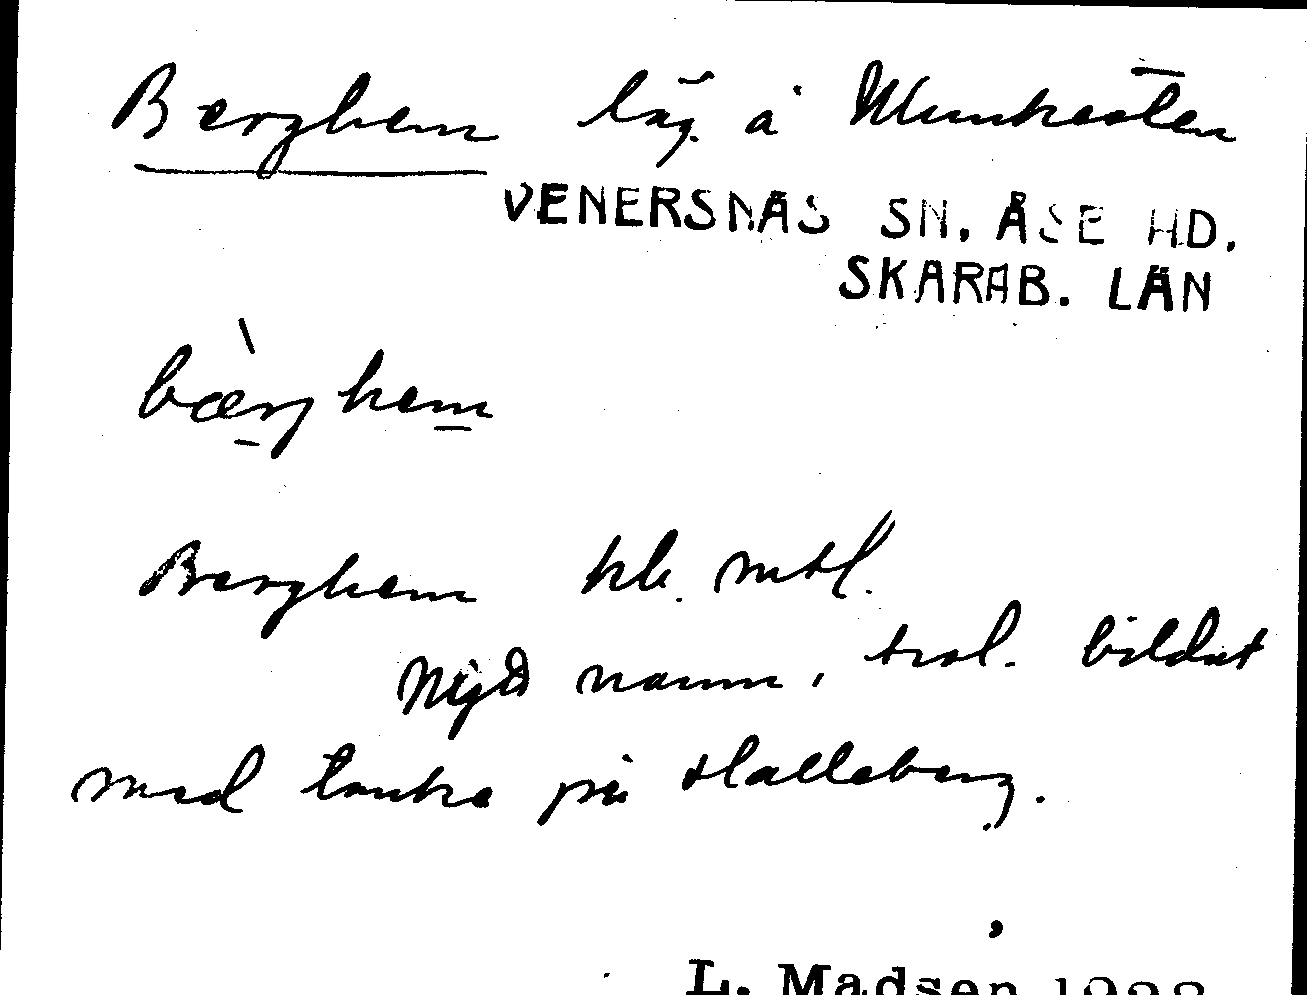 Berghem läg. å Munkesten
VENERSNÄS SN. ÅSE HD.
SKARAB. LÄN
bæ̀rghem
Berghem hb. mtl.
Nÿtt namn, trol. bildat
med tanke på Halleberg.
L. Madsen